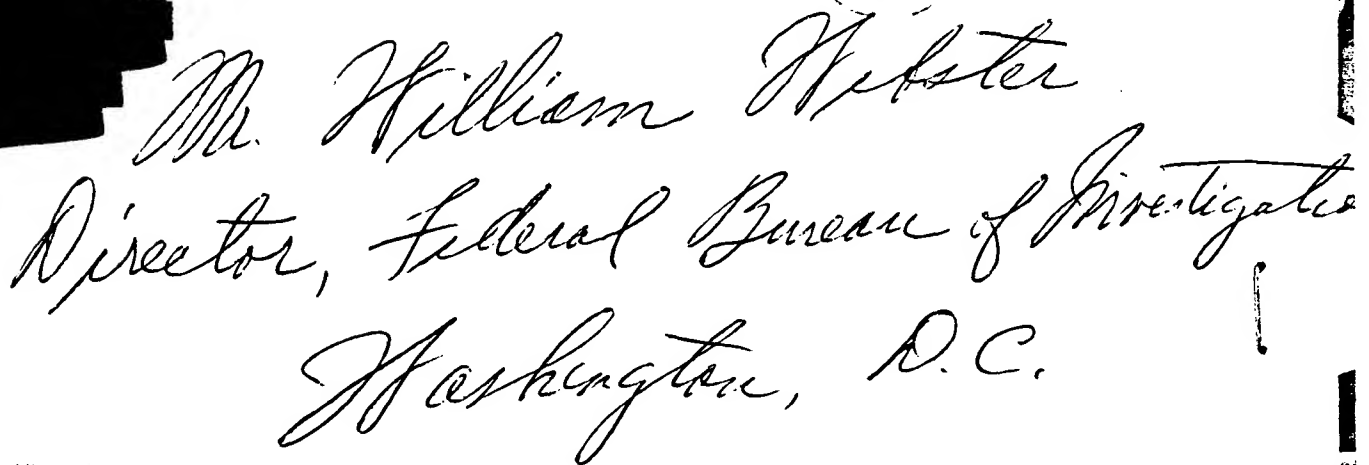 Mr. William Webster
Director, Federal Bureau of Investigatio
Washington, D.C.